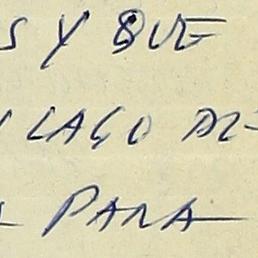 S Y QUE
LAGO DE
PARA